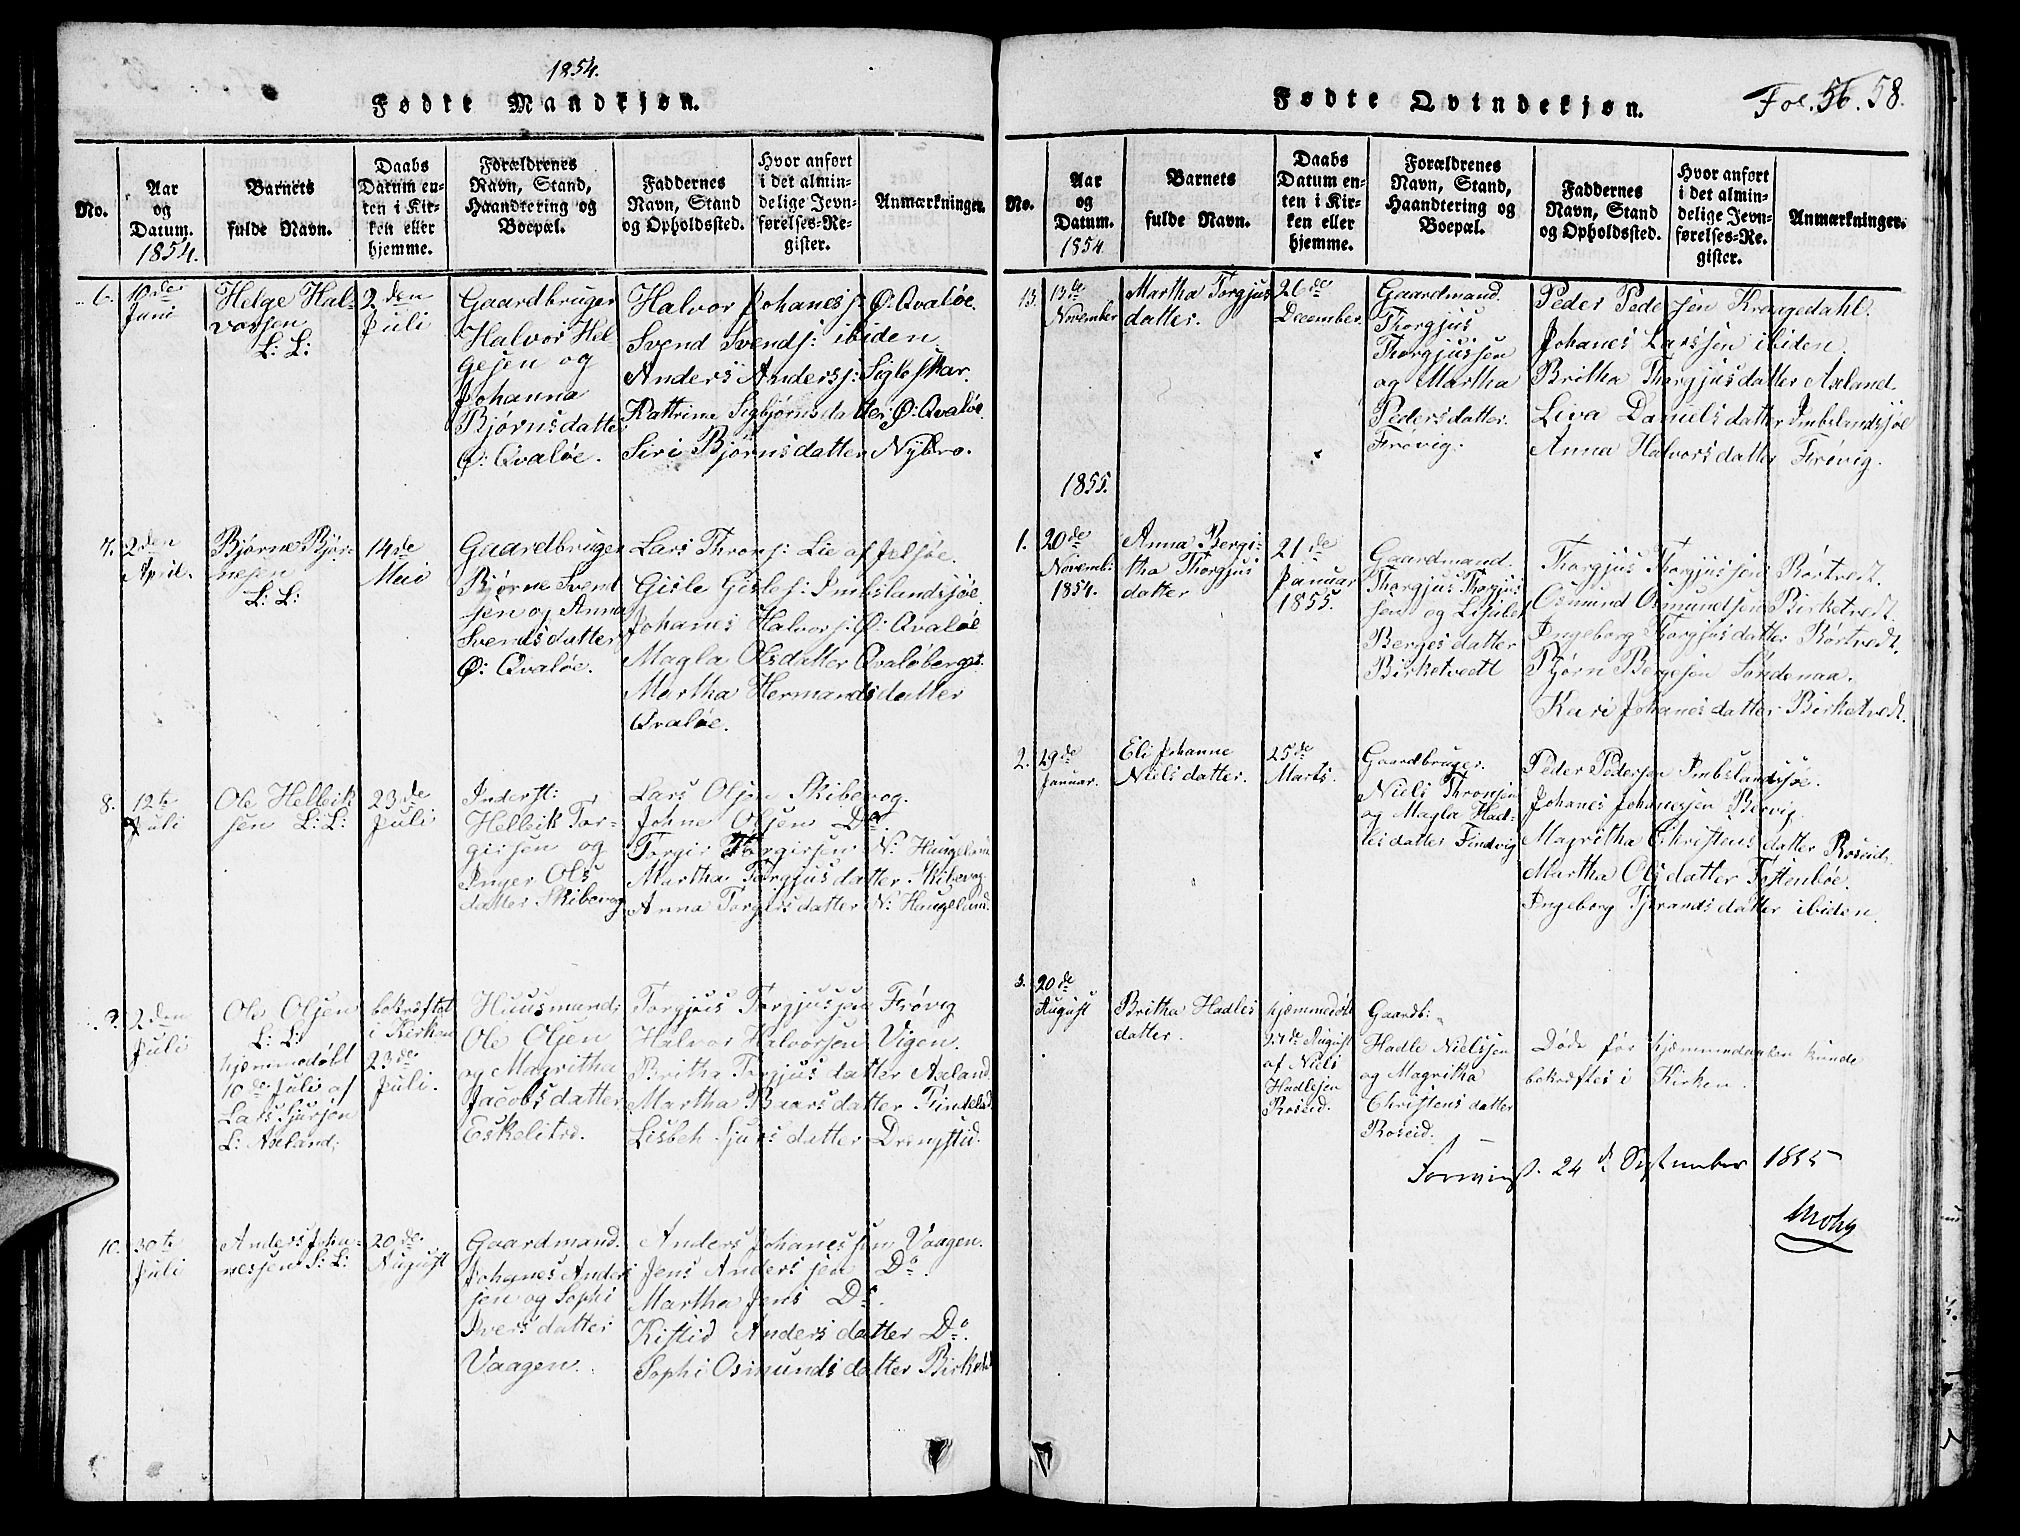 1854.
Fødte Mandkjøn.
No.
Aar og Datum. 1854.
Barnets fulde Navn.
Daabs Datum enten i Kirken eller hjemme.
Forældrenes Navn, Stand, Haandtering og Boepæl.
Faddernes Navn, Stand og Opholdssted.
Hvor anført i det almindelige Jevnførelses-Register.
Anmærkninger.
6.
10de Juni
Helge Hal-
vorsen
L: L:
2den
Juli
Gaardbruger
Halvor Hel
gesen og
Johanna
Bjørnsdatter
Ø: Qvaløe.
Halvor Johanesj: Ø: Qvaløe.
Svend Svendj: ibiden.
Anders Andersj: Sigleskar.
Kattrine Sigbjørnsdatter Ø: Qvaløe.
Siri Bjørnsdatter Nybro.
7.
2den
April.
Bjørne Bjør-
nesen
L: L:
14de
Mai
Gaardbruger
Bjørne Svend
sen og Anna
Svendsdatter
Ø: Qvaløe.
Lars Thronj: Lie af Jelsøe.
Gisle Gislej: Imbslandsjøe.
Johanes Halvorj: Ø: Qvaløe
Magla Olsdatter Qvaløberget.
Martha Hermandsdatter
Qvaløe.
8.
12te
Juli
Ole Helleik
sen L: L:
23de
Juli
Inderst:
Helleik Tor-
gersen og
Inger Ols
datter Skibevog
Lars Olsen Skibevog.
Johne Olsen Do
Torgir Torgirsen N: Haugeland
Martha Torgjusdatter Skibevog
Anna Torgirsdatter N: Haugeland.
9.
2den
Juli
Ole Olsen
L: L:
hjemmedøbt
10de Juli af
Lars Sjursen
L: Axland:
bekræftet
i Kirken
23de
Juli.
Huusmand:
Ole Olsen
og Magritha
Jacobsdatter
Eskelitrd.
Torgjus Torgjussen Frøvig
Halvor Halvorsen Vigen.
Britha Torgjusdatter Axland.
Martha Baarsdatter
Lisbeh Sjursdatter
10.
30te
Juli
Anders Joha-
nessen L: L:
20de
August
Gaardmand.
Johanes Anders
sen og Sophi
Iversdatter
Vaagen.
Anders Johanessen Vaagen.
Jens Andersen Do.
Martha Jens Do.
Kistid Andersdatter Do.
Sophi Osmundsdatter
Fødte Qvindekjøn.
Fol. 56. 58.
No.
Aar og Datum. 1854
Barnets fulde Navn.
Daabs Datum enten i Kirken eller hjemme.
Forældrenes Navn, Stand, Haandtering og Boepæl.
Faddernes Navn, Stand og Opholdssted.
Hvor anført i det almindelige Jevnførelses-Register.
Anmærkninger.
13.
13de
November
Martha Torgjus
datter.
26de
December.
Gaardmand.
Thorgjus
Thorgjussen
og Martha
Pedersdatter.
Frøvig.
Peder Pedersen Krangedahl.
Johanes Larssen ibiden.
Britha Thorgjusdatter Axland.
Liva Danielsdatter Imbslandsjøe
Anna Halvorsdatter Frøvig.
1855.
1.
20de
Novemb:
1854.
Anna Bergi-
tha Thorgjus
datter
21de
Januar
1855.
Gaardmand.
Thorgjus Thorgjus
sen og Lisbet
Bergesdatter
Birketvedt
Thorgjus Thorgjussen Rørtvedt.
Osmund Osmundsen Birketvedt.
Ingeborg Thorgjusdatter Rørtvedt.
Bjørn Bergesen Søndenaa.
Kari Johanesdatter Birketvedt.
2.
29de
Januar.
Eli Johanne
Nielsdatter.
25de
Marts.
Gaardbruger.
Niels Thronsen
og Magla Had-
lesdatter Findvig
Peder Pedersen Imbslandsjøe.
Johanes Johanessen Bervig.
Magritha Christensdatter Roseid.
Martha Olsdatter Tostenbøe.
Ingeborg Tjerandsdatter ibiden.
3.
20de
August
Britha Hadles
datter.
hjemmedøbt
27de August
af Niels
Hadlesen
Roseid.
Gaardb:
Hadle Nielssen
og Magritha
Christensdatter
Roseid.
Døde før hjemmedaaben kunde
bekræftes i Kirken.
24de September 1855